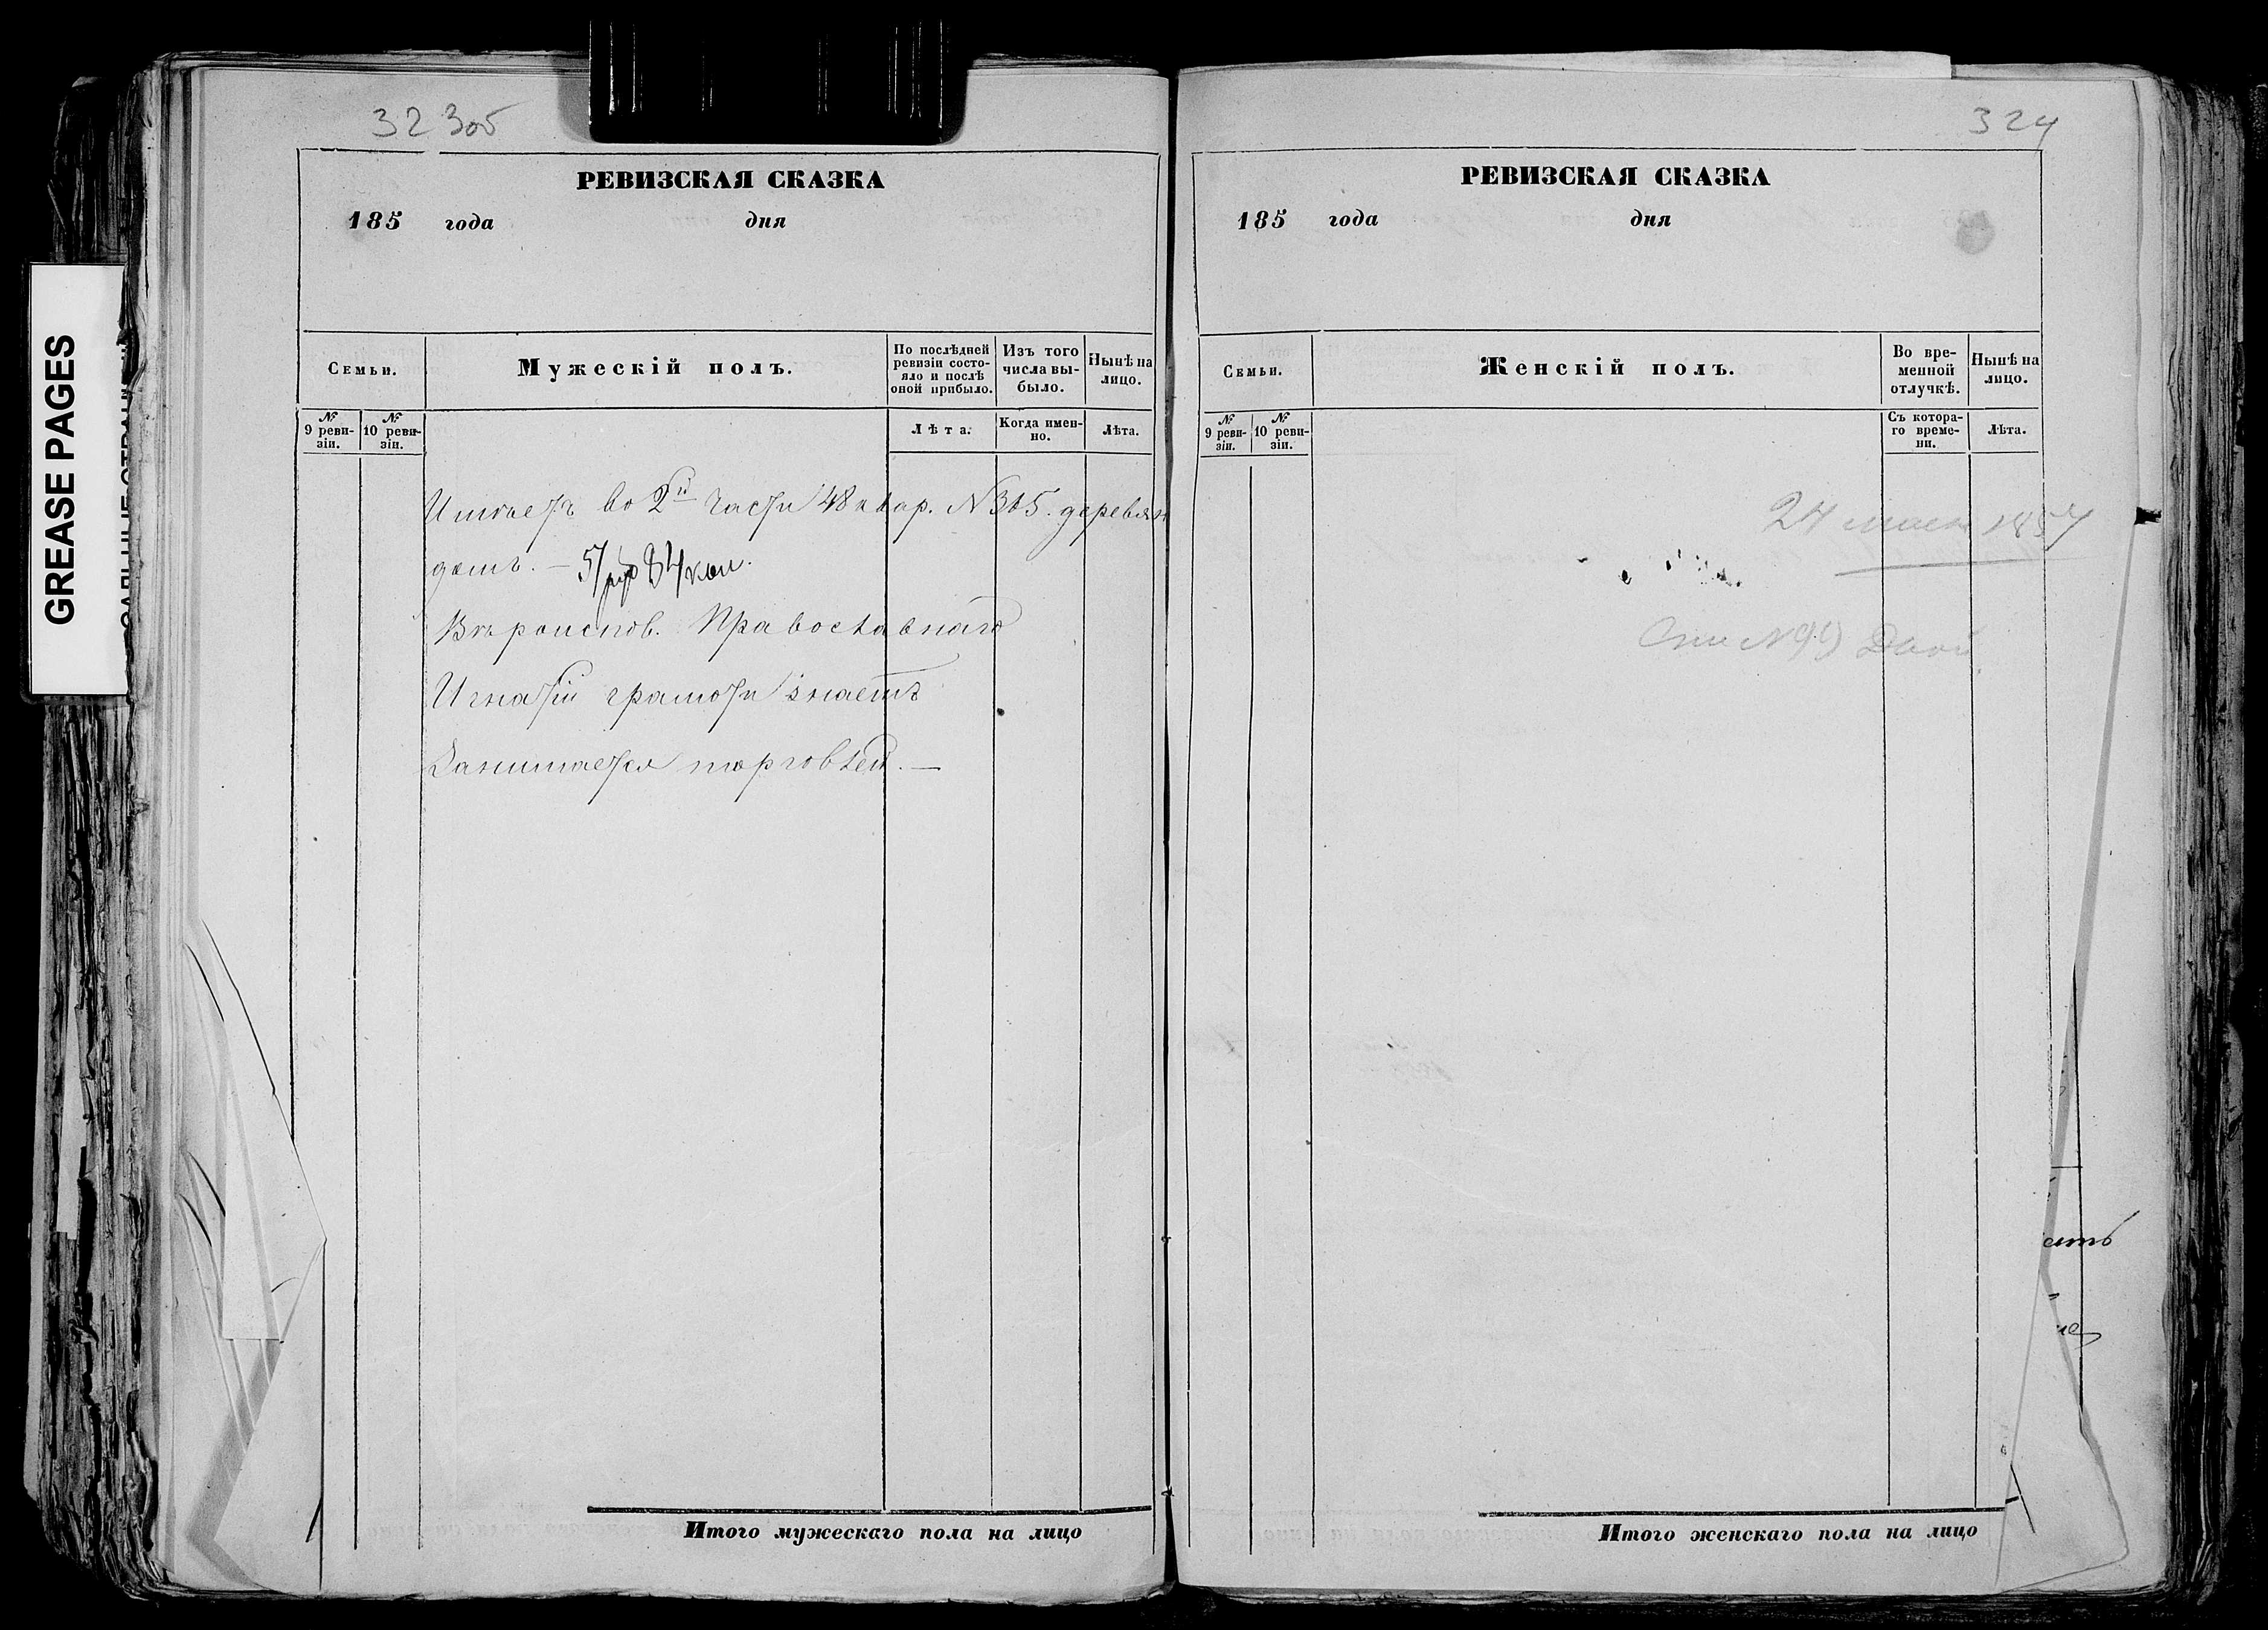 GREASE PAGES
32 3об
РЕВИЗСКАЯ СКАЗКА
185 года дня
Семьи.
Мужескій полъ.
По послѣдней ревизіи состо-
яло и послѣ
оной прибыло.
Изъ того
числа вы-
было.
Нынѣ на
лицо.
№
9 реви-
зіи.
№
10 реви-
зіи.
Лѣта.
Когда имен-
но.
Лѣта.
Имѣетъ во 2й части 48 квар. N 305. деревян
домъ. – 5/руб 84/коп.
Вѣроиспов. Православнаго
Игнатій грамоти знаетъ
Занимается торговлей. —
Итого мужескаго пола на лицо
324
РЕВИЗСКАЯ СКАЗКА
185 года дня
Семьи.
Женскій полъ.
Во вре-
менной
отлучкѣ.
Нынѣ на
лицо.
№
9 реви-
зіи.
№
10 реви-
зіи.
Съ котора-
го време-
ни.
Лѣта.
24 1857
Итого женскаго пола на лицо